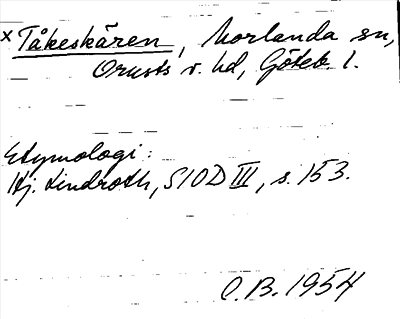 x Tåkeskären, Morlanda sn,
Orusts v. hd, Göteb. l.
Etymologi:
Hj. Lindroth, SIOD III, s. 153.
C.B. 1954